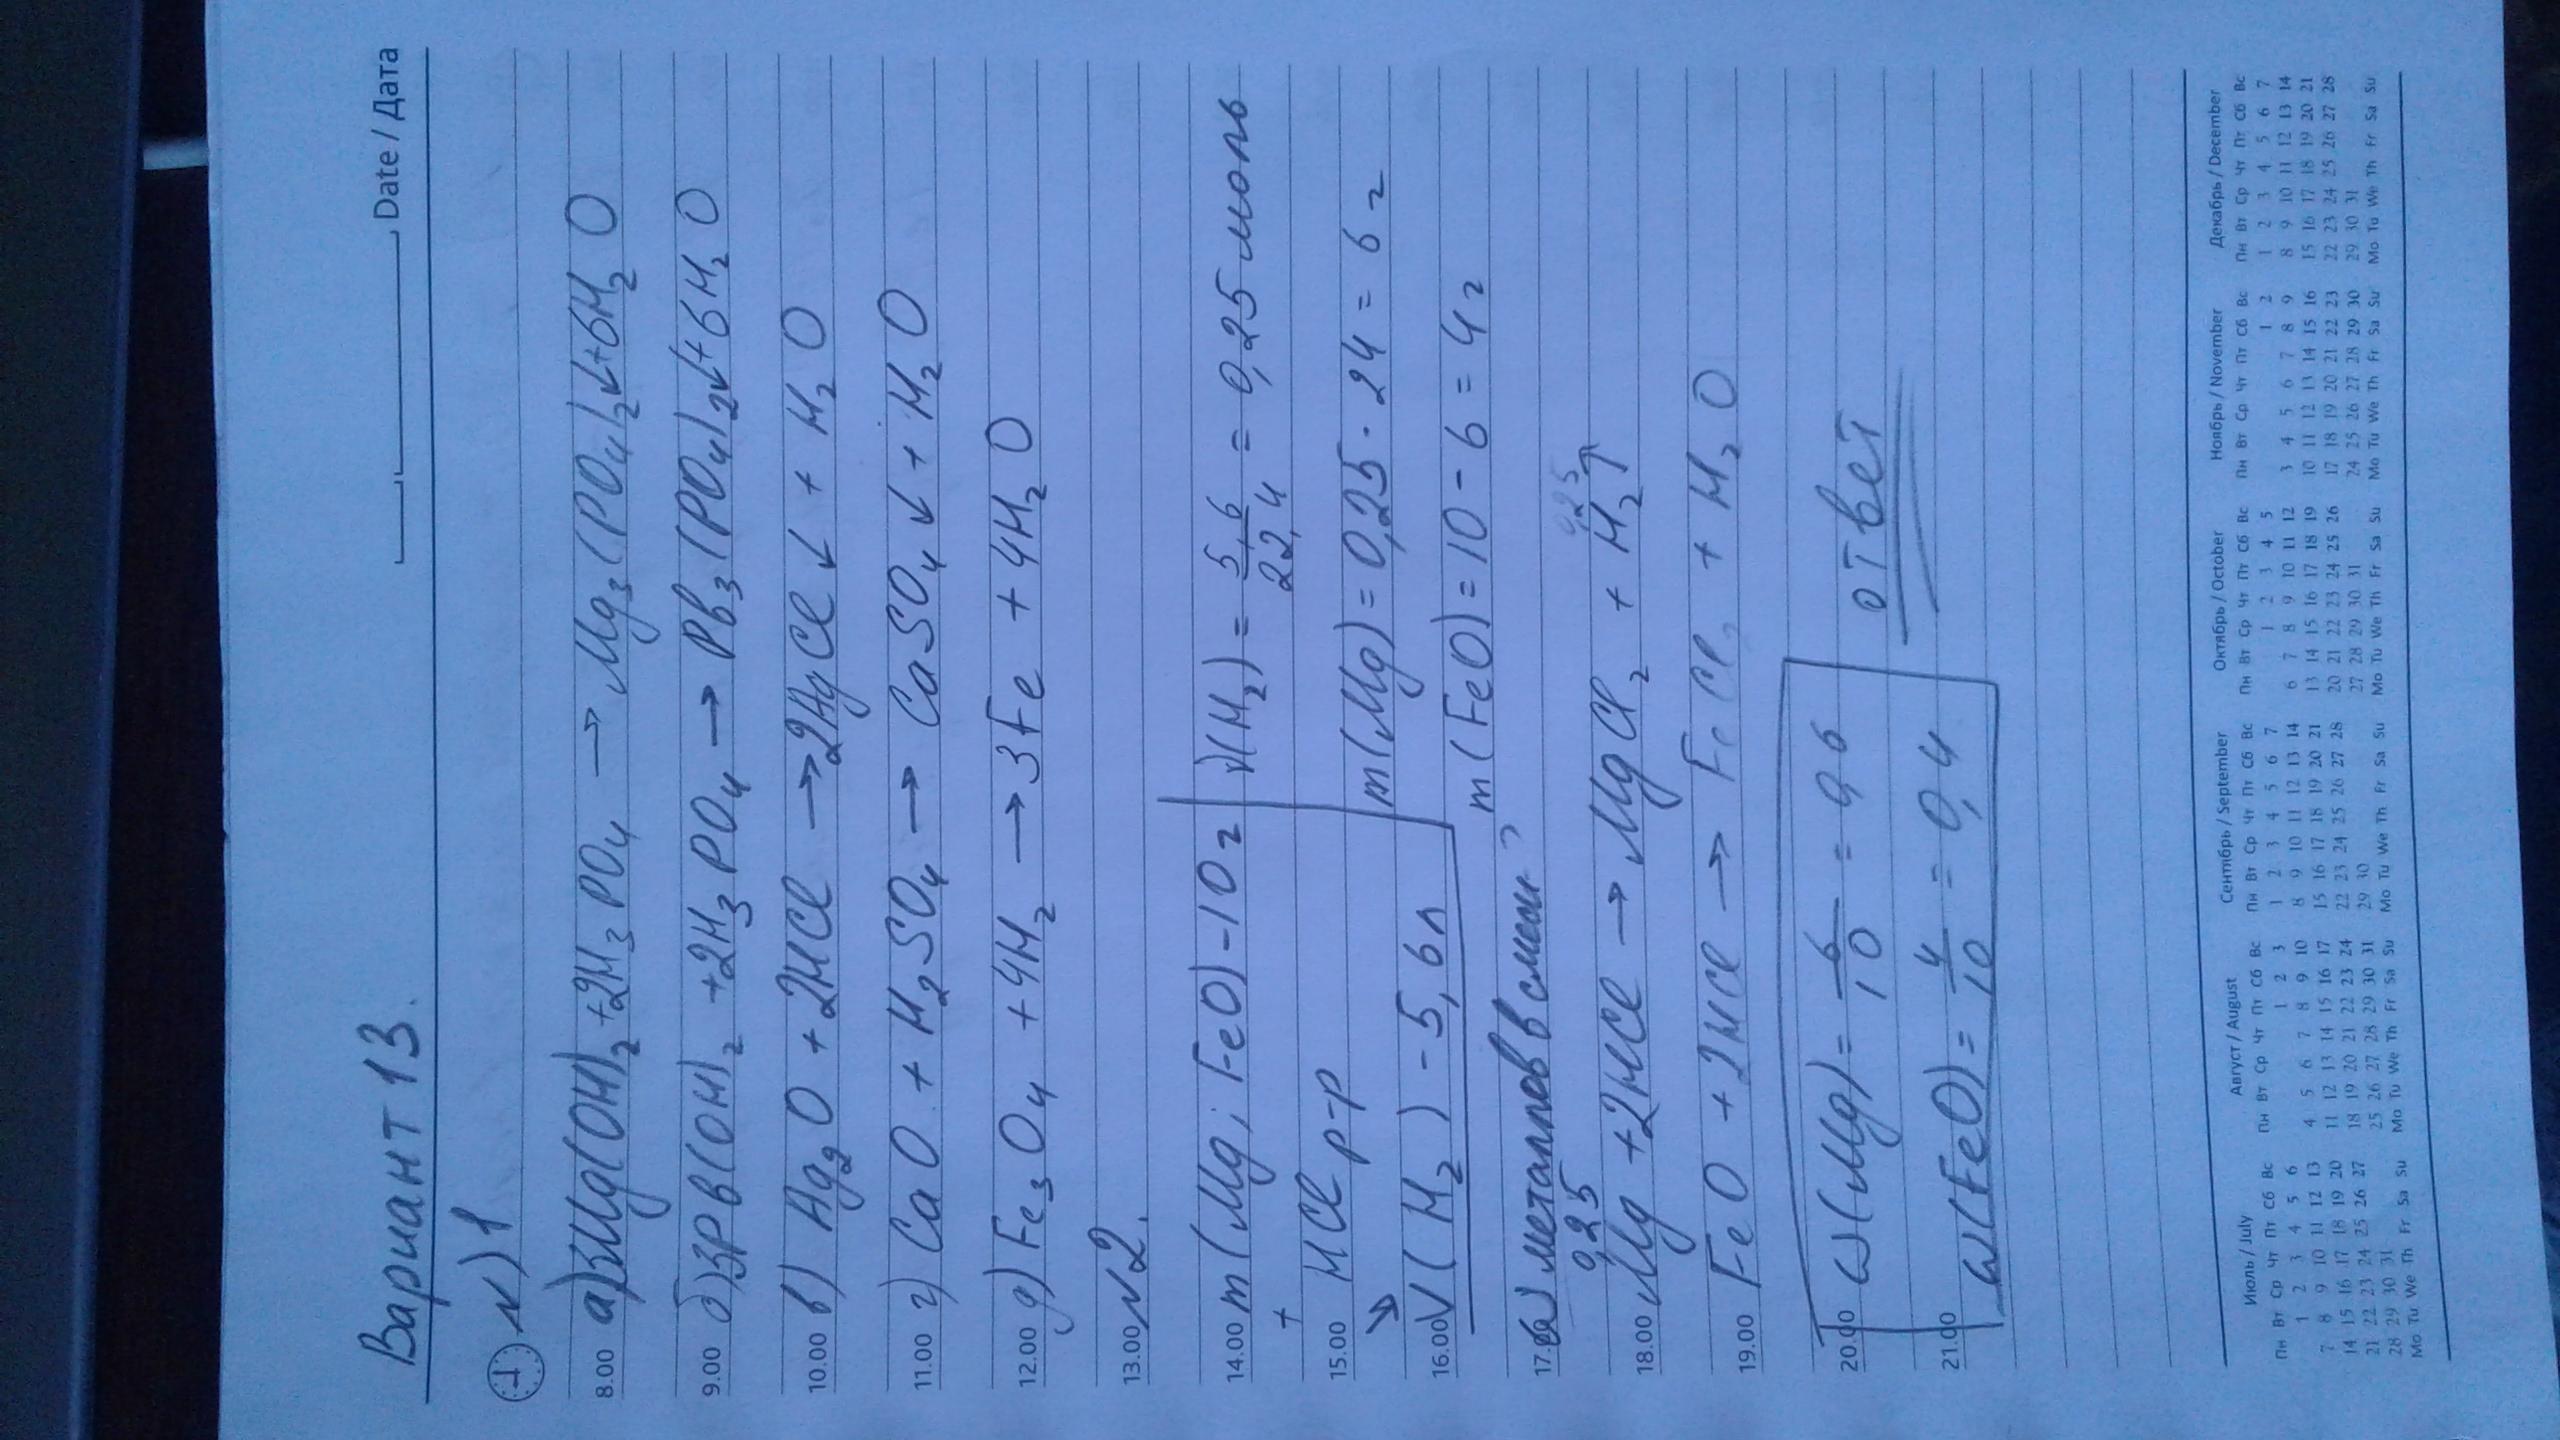 Date / Дата
Вариант 13.
№1
8.00 а) 3Mg(OH)₂ + 2H₃PO₄ → Mg₃(PO₄)₂↓ + 6H₂O
9.00 б) 3Pb(OH)₂ + 2H₃PO₄ → Pb₃(PO₄)₂↓ + 6H₂O
10.00 в) Ag₂O + 2HCl → 2AgCl↓ + H₂O
11.00 г) CaO + H₂SO₄ → CaSO₄↓ + H₂O
12.00 д) Fe₃O₄ + 4H₂ → 3Fe + 4H₂O
13.00 №2.
14.00 m(Mg; FeO) - 10 г ν(H₂) = 5,6/22,4 = 0,25 моль
+
15.00 HCl р-р m(Mg) = 0,25 · 24 = 6 г
→
16.00 V(H₂) - 5,6 л m(FeO) = 10 - 6 = 4 г
17. ω металлов в смеси ?
0,25 0,25
18.00 Mg + 2HCl → MgCl₂ + H₂↑
19.00 FeO + 2HCl → FeCl₂ + H₂O
20.00 ω(Mg) = 6/10 = 0,6
ответ
21.00 ω(FeO) = 4/10 = 0,4
Июль / July Август / August Сентябрь / September Октябрь / October Ноябрь / November Декабрь / December
Пн Вт Ср Чт Пт Сб Вс Пн Вт Ср Чт Пт Сб Вс Пн Вт Ср Чт Пт Сб Вс Пн Вт Ср Чт Пт Сб Вс Пн Вт Ср Чт Пт Сб Вс Пн Вт Ср Чт Пт Сб Вс
1 2 3 4 5 6 1 2 3 1 2 3 4 5 6 7 1 2 3 4 5 1 2 1 2 3 4 5 6 7
7 8 9 10 11 12 13 4 5 6 7 8 9 10 8 9 10 11 12 13 14 6 7 8 9 10 11 12 3 4 5 6 7 8 9 8 9 10 11 12 13 14
14 15 16 17 18 19 20 11 12 13 14 15 16 17 15 16 17 18 19 20 21 13 14 15 16 17 18 19 10 11 12 13 14 15 16 15 16 17 18 19 20 21
21 22 23 24 25 26 27 18 19 20 21 22 23 24 22 23 24 25 26 27 28 20 21 22 23 24 25 26 17 18 19 20 21 22 23 22 23 24 25 26 27 28
28 29 30 31 25 26 27 28 29 30 31 29 30 27 28 29 30 31 24 25 26 27 28 29 30 29 30 31
Mo Tu We Th Fr Sa Su Mo Tu We Th Fr Sa Su Mo Tu We Th Fr Sa Su Mo Tu We Th Fr Sa Su Mo Tu We Th Fr Sa Su Mo Tu We Th Fr Sa Su